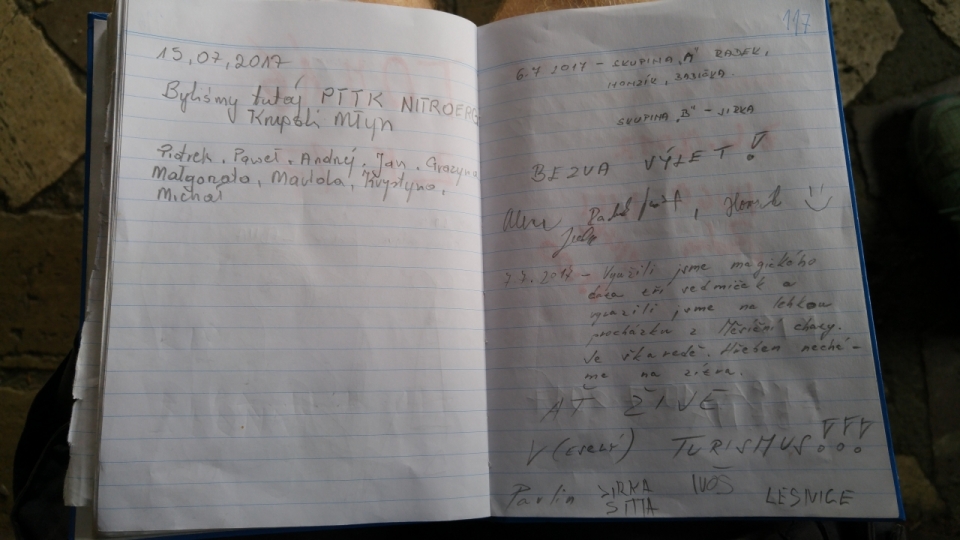 15,07,2017
Byliśmy tutaj PTTK NITROERG
Krupski Młyn
Piotrek, Paweł, Andrzej, Jan, Grażyna
Małgorzata, Mariola, Krystyna,
Michał
117
6.7 2017 - SKUPINA „A" RADEK,
HONZÍK,
SKUPINA „B" - JIRKA
BEZVA VÝLET!
Radek Honzík
7.7.2017 - Využili jsme magického
data tří sedmiček a
vyrazili jsme na lehkou
procházku z Měsíční chaty.
Je škaredě. Hřeben nechá-
me na zítra.
AŤ ŽIVĚ
V (ČESKÝ) TURISMUS!!!
Pavlín JIRKA IVOŠ LESNICE